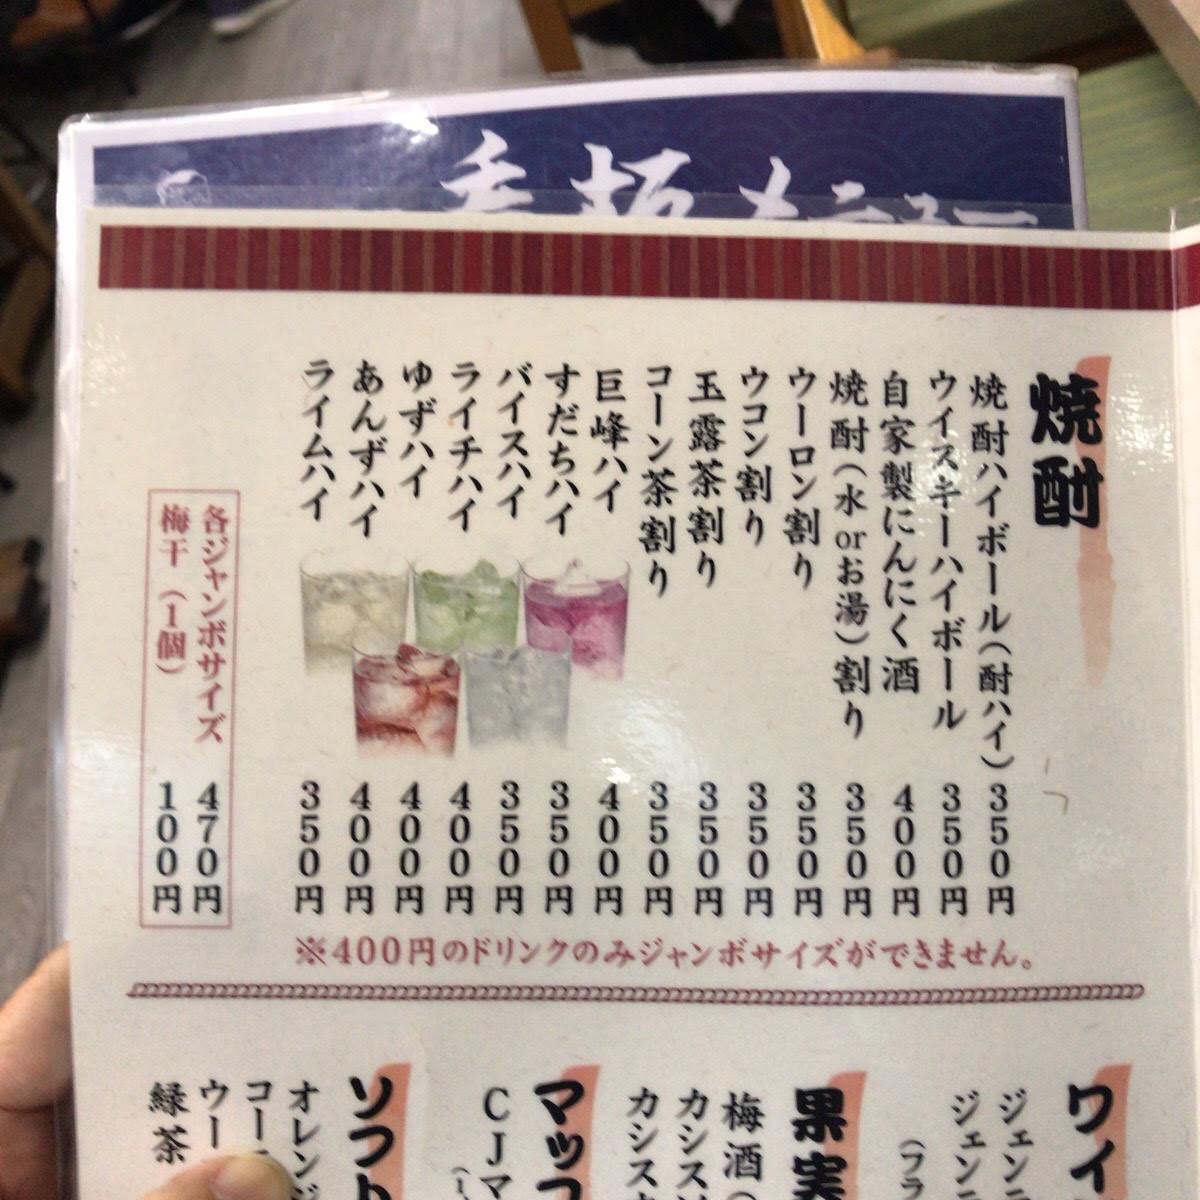 焼酎
焼酎ハイボール(酎ハイ) 350円
ウイスキーハイボール 350円
自家製にんにく酒 400円
焼酎(水orお湯)割り 350円
ウーロン割り 350円
ウコン割り 350円
玉露茶割り 350円
コーン茶割り 350円
巨峰ハイ 400円
すだちハイ 350円
バイスハイ 350円
ライチハイ 400円
ゆずハイ 400円
あんずハイ 400円
ライムハイ 350円
各ジャンボサイズ 470円
梅干(1個) 100円
※400円のドリンクのみジャンボサイズができません。
ワイ
ジェン
ジェン
果実
梅酒
カシス
カシス
マッコ
CJマ
ソフト
オレンジ
コー
ウー
緑茶